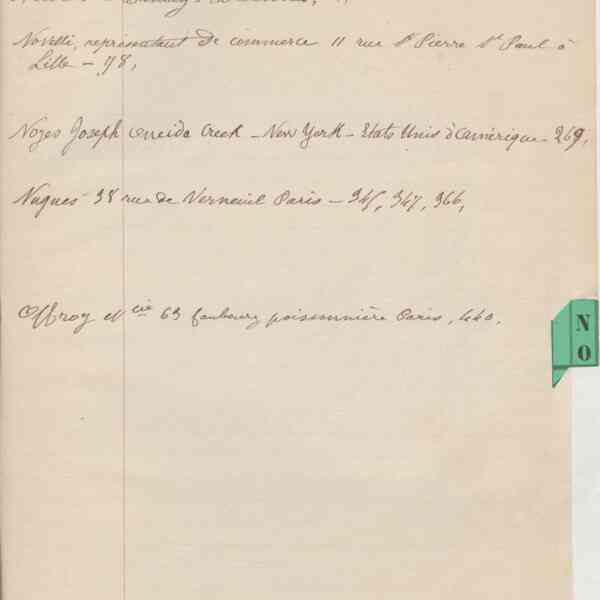 Novelli, représentant de commerce 11 rue St Pierre St Paul à
Lille - 98,
Noyes Joseph Oneida Creek - New York - Etats Unis d'amérique - 269,
Nuques 38 rue de Verneuil Paris - 345, 347, 366,
Offroy et Cie 63 faubourg poissonnière Paris, 440.
N
O